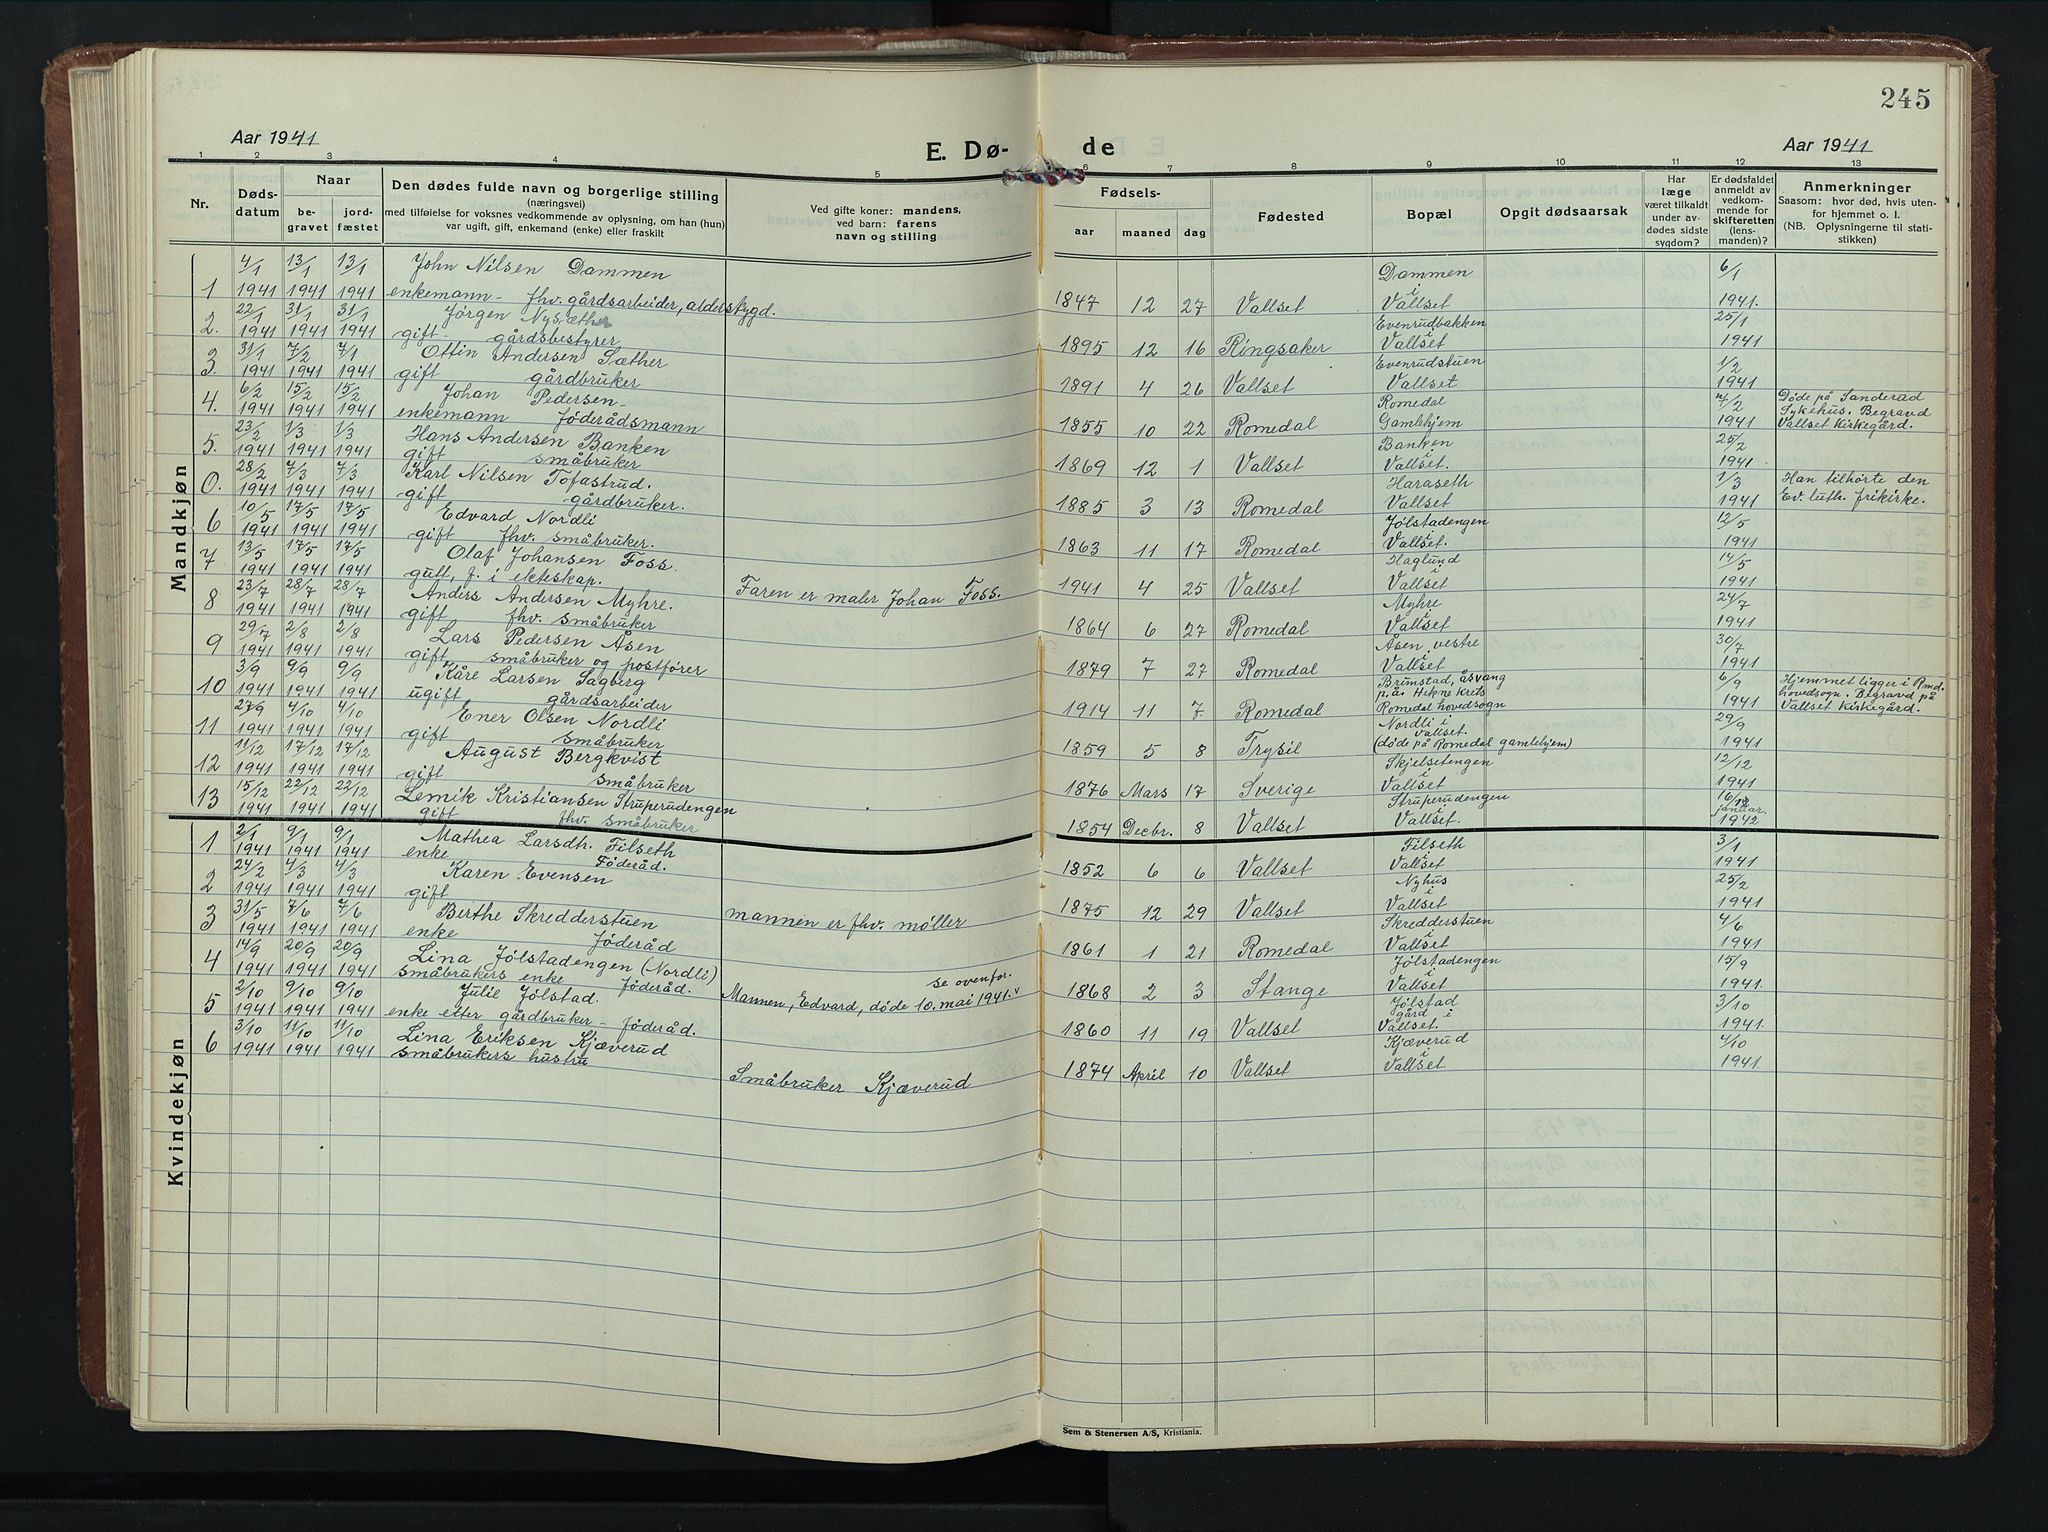 245
Aar 1941
E. Dø-
de
Aar 1941
1 2 3 4 5 6 7 8 9 10 11 12 13
Nr.
Døds-
datum
Naar
be-
gravet
jord-
fæstet
Den dødes fulde navn og borgerlige stilling
(næringsvei)
med tilføielse for voksnes vedkommende av oplysning, om han (hun)
var ugift, gift, enkemand (enke) eller fraskilt
Ved gifte koner: mandens,
ved barn: farens
navn og stilling
Fødsels-
aar maaned dag
Fødested
Bopæl
Opgit dødsaarsak
Har
læge
været tilkaldt
under av-
dødes sidste
sygdom?
Er dødsfaldet
anmeldt av
vedkom-
mende for
skifteretten
(lens-
manden)?
Anmerkninger
Saasom: hvor død, hvis uten-
for hjemmet o. l.
(NB. Oplysningerne til stati-
stikken)
Mandkjøn
4/1 13/1 13/1 John Nilsen Dammen Dammen 6/1
1 1941 1941 1941 enkemann - fhv. gårdsarbeider, alderstrygd. 1847 12 27 Vallset i Vallset 1941.
22/1 31/1 31/1 Jörgen Nysæther Evenrudbakken 25/1
2. 1941 1941 1941 gift - gårdsbestyrer 1895 12 16 Ringsaker i Vallset 1941
31/1 7/2 7/1 Ottin Andersen Sæther Evenrudstuen 1/2
3. 1941 1941 1941 gift gårdbruker 1891 4 26 Vallset Vallset 1941
6/2 15/2 15/2 Johan Pedersen Romedal 7/2 Døde på Sanderud
4. 1941 1941 1941 enkemann föderådsmann 1855 10 22 Romedal Gamlehjem 1941 Sykehus. Begravd
Vallset kirkegård.
23/2 1/3 1/3 Hans Andersen Banken Banken 25/2
5. 1941 1941 1941 gift småbruker 1869 12 1 Vallset i Vallset. 1941
28/2 7/3 7/3 Karl Nilsen Tofastrud. Haraseth 1/3 Han tilhørte den
0. 1941 1941 1941 gift gårdbruker. 1885 3 13 Romedal Vallset 1941 Ev. luth. frikirke.
10/5 17/5 17/5 Edvard Nordli Jølstadengen 12/5
6 1941 1941 1941 gift fhv. småbruker. 1863 11 17 Romedal i Vallset. 1941
13/5 17/5 17/5 Olaf Johansen Foss Haglund 14/5
7 1941 1941 1941 gutt, f. i ekteskap. Faren er maler Johan Foss. 1941 4 25 Vallset i Vallset 1941
23/7 28/7 28/7 Anders Andersen Myhre. Myhre 24/7
8 1941 1941 1941 gift fhv. småbruker 1864 6 27 Romedal i Vallset 1941
29/7 2/8 2/8 Lars Pedersen Åsen Åsen, vestre 30/7
9 1941 1941 1941 gift, småbruker og postfører 1879 7 27 Romedal i Vallset 1941
3/9 9/9 9/9 Kåre Larsen Sagberg Brimstad, åsvang 6/9 Hjemmet ligger i Rmd.
10 1941 1941 1941 ugift gårdsarbeider 1914 11 7 Romedal p.å. Hekne Krets 1941 hovedsogn. Begravd på
Romedal hovedsogn Vallset kirkegård.
27/9 4/10 4/10 Ener Olsen Nordli Nordli i 29/9
11 1941 1941 1941 gift småbruker 1859 5 8 Trysil Vallset. 1941
(døde på Romedal gamlehjem)
11/12 17/12 17/12 August Bergkvist Skjelsetengen 12/12
12 1941 1941 1941 gift småbruker 1876 Mars 17 Sverige i Vallset 1941
15/12 22/12 22/12 Lemik Kristiansen Struperudengen Struperudengen 16/12
13 1941 1941 1941 gift fhv. småbruker 1854 Decbr. 8 Vallset i Vallset. januar 1942
Kvindekjøn
2/1 9/1 9/1 Mathea Larsdtr. Filseth Filseth 3/1
1 1941 1941 1941 enke Föderåd. 1852 6 6 Vallset i Vallset 1941
24/2 4/3 4/3 Karen Evensen Nyhus 25/2
2 1941 1941 1941 gift mannen er fhv. møller 1875 12 29 Vallset i Vallset 1941
31/5 7/6 7/6 Berthe Skredderstuen Skredderstuen 4/6
3 1941 1941 1941 enke föderåd 1861 1 21 Romedal i Vallset 1941
14/9 20/9 20/9 Lina Jølstadengen (Nordli) Jølstadengen 15/9
4 1941 1941 1941 småbrukers enke föderåd. se ovenfor.
Mannen, Edvard, døde 10. mai 1941. v 1868 2 3 Stange i Vallset 1941.
2/10 9/10 9/10 Julie Jølstad. Jølstad 3/10
5 1941 1941 1941 enke etter gårdbruker - föderåd. 1860 11 19 Vallset gård i Vallset. 1941.
3/10 11/10 11/10 Lina Eriksen Kjæverud Kjæverud 4/10
6 1941 1941 1941 småbrukers hustru Småbruker Kjæverud 1874 April 10 Vallset i Vallset. 1941
Sem & Stenersen A/S, Kristiania.